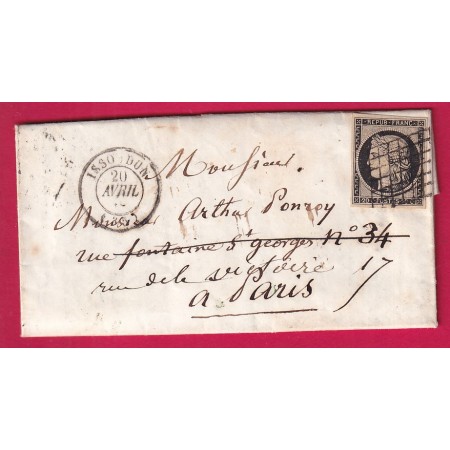 ISSOUDUN
20
AVRIL
REPUB. FRANC.
Monsieur
Arthur Ponroy
rue fontaine St georges n° 34
rue de la victoire 17
a Paris